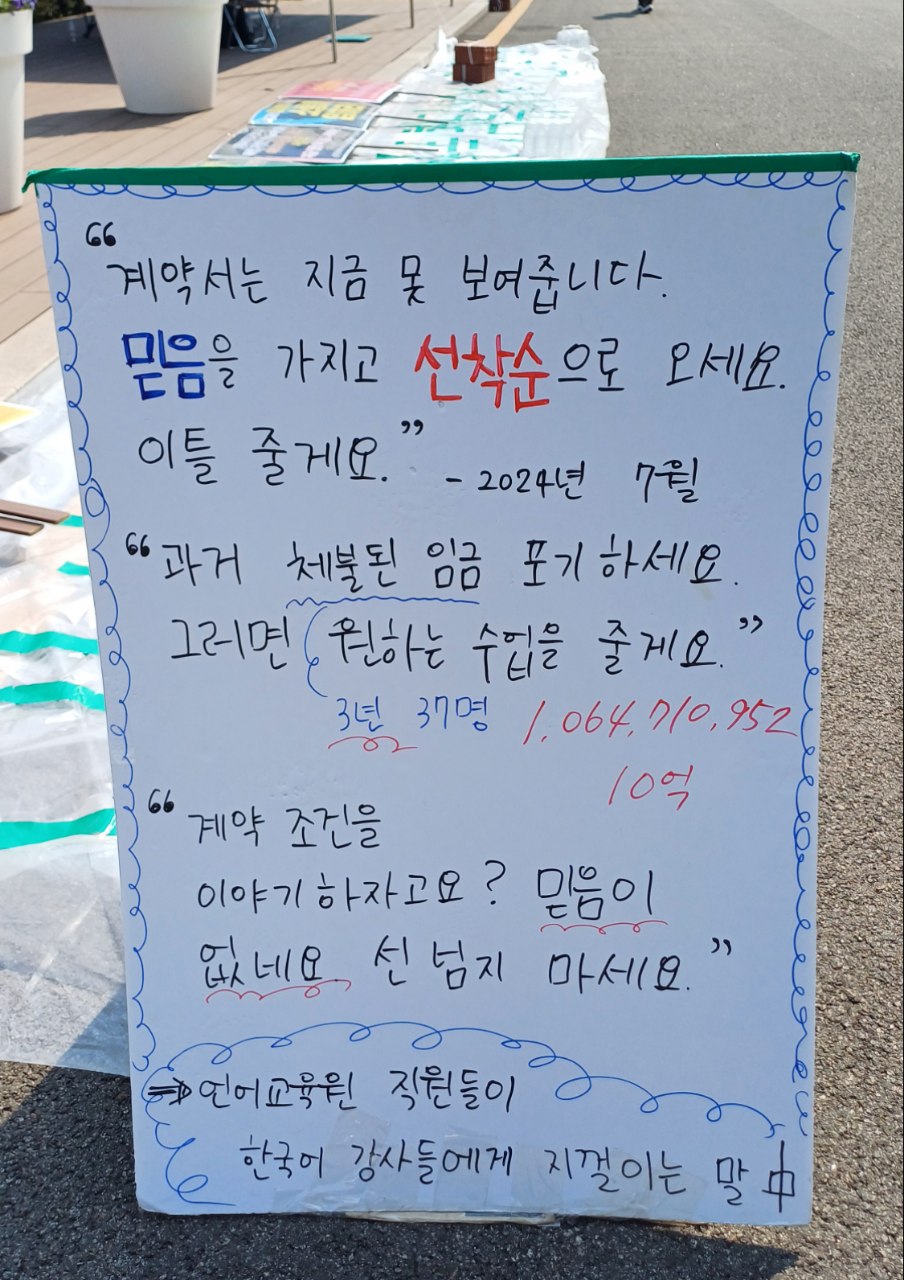 “계약서는 지금 못 보여줍니다.
믿음을 가지고 선착순으로 오세요.
이틀 줄게요.” - 2024년 7월
“과거 체불된 임금 포기하세요.
그러면 원하는 수업을 줄게요.”
3년 37명 1,064,710,952
10억
“계약 조건을
이야기하자고요? 믿음이
없네요 선 넘지 마세요.”
⇒ 언어교육원 직원들이
한국어 강사들에게 지껄이는 말 中